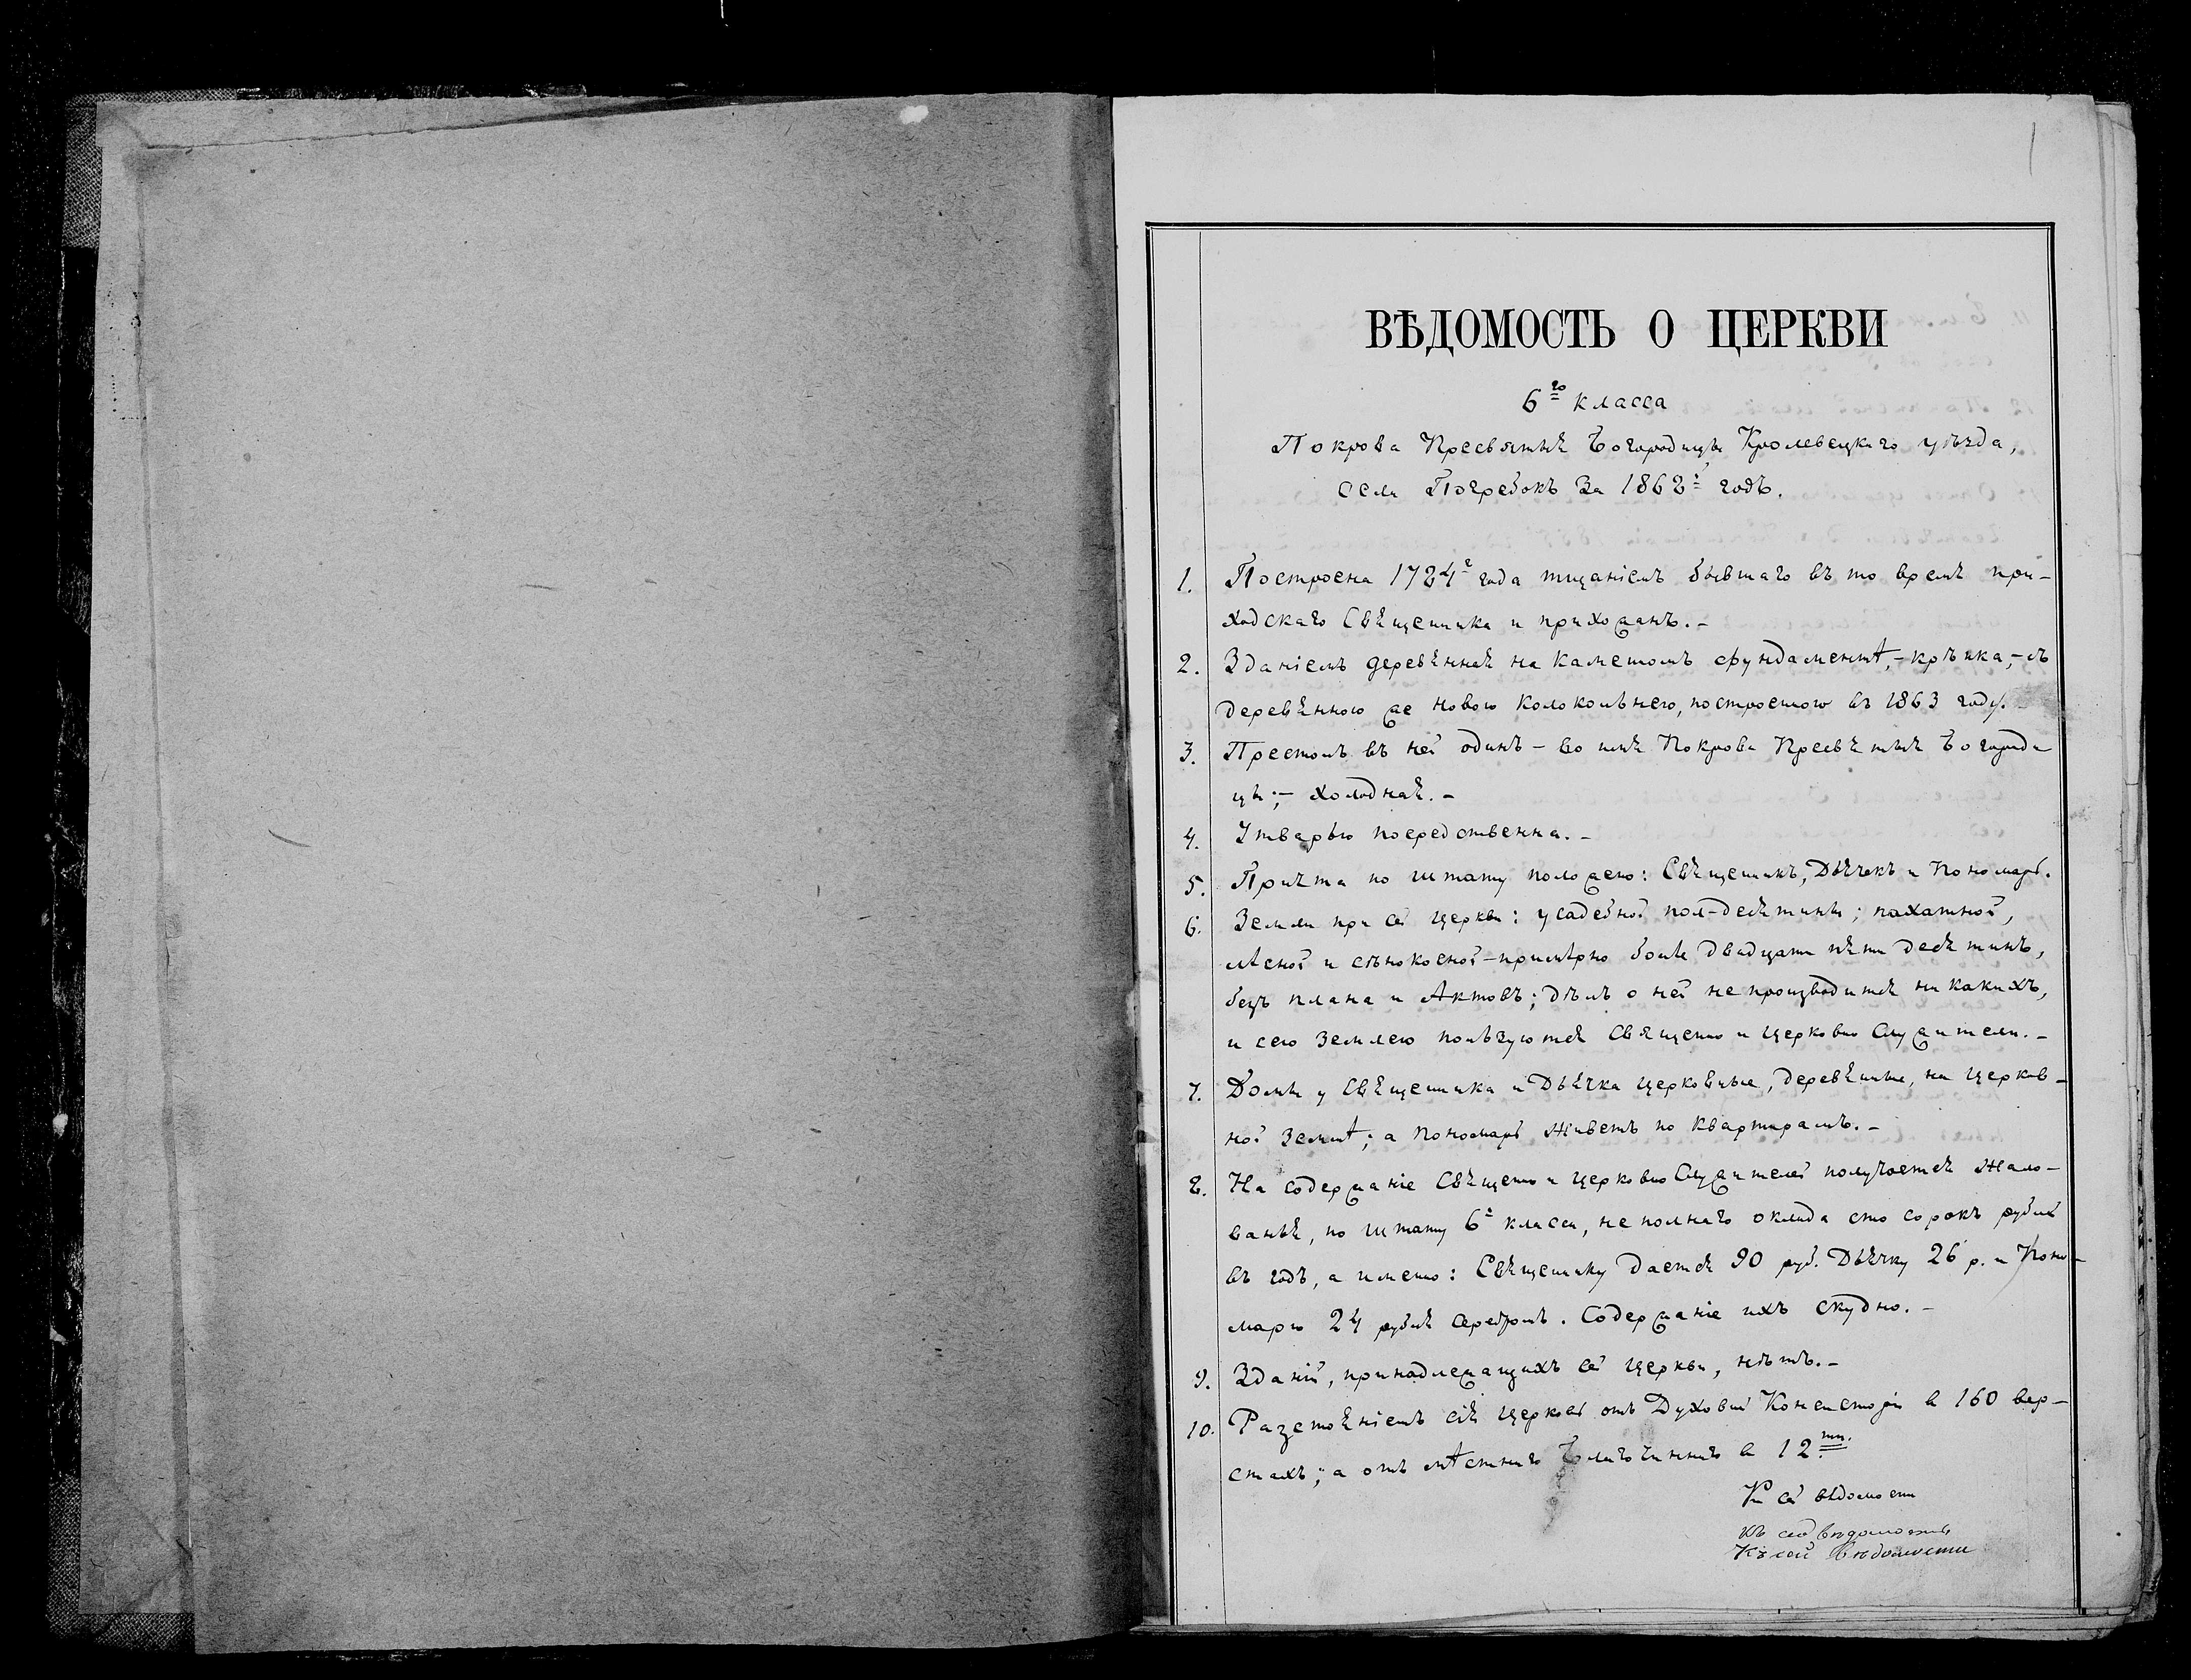 1
ВѢДОМОСТЬ О ЦЕРКВИ
6го класса
Покрова Пресвятыя Богородицы Кролевецкаго уѣзда,
села Погребокъ за 1862й годъ.
1. Построена 1724г года тщаніемъ бывшаго въ то время при-
ходскаго Священника и прихожанъ. –
2. Зданіемъ деревянная на каменомъ фундаментѣ, – крѣпка, – съ
деревянною же новою колокольнею, построеною въ 1863 году.
3. Престолъ въ ней одинъ – во имя Покрова Пресвятыя Богороди
цы; – холодная. –
4. Утварью посредственна. –
5. Причта по штату положено: Священикъ, Дьячекъ и Пономарь.
6. Земли при сей церкви: усадебной пол-десятины; пахатной,
лѣсной и сѣнокосной – примѣрно болѣе двадцати пяти десятинъ,
безъ плана и Актовъ; дѣлъ о ней не производится никакихъ,
и сею землею пользуются Священо и церковно Служители. –
7. Домы у Священика и Дьячка церковные, деревяные, на церков-
ной землѣ; а Пономарь живетъ по квартирамъ. –
8. На содержаніе Священо и церковно Служителей получается жало-
ванья, по штату 6г класса, не полнаго оклада сто сорокъ рублей
въ годъ, а имено: Священику дается 90 руб. Дьячку 26 р. и Поно-
марю 24 рубля серебромъ. Содержаніе ихъ скудно. –
9. Зданій, принадлежащихъ сей церкви, нѣтъ. –
10. Разстояніемъ сія церковь отъ Духовной Консисторіи в 160 вер-
стахъ; а отъ мѣстнаго Благочиннаго в 12ти.
К сей вѣдомости
къ сей вѣдомости
Къ сей вѣдомости